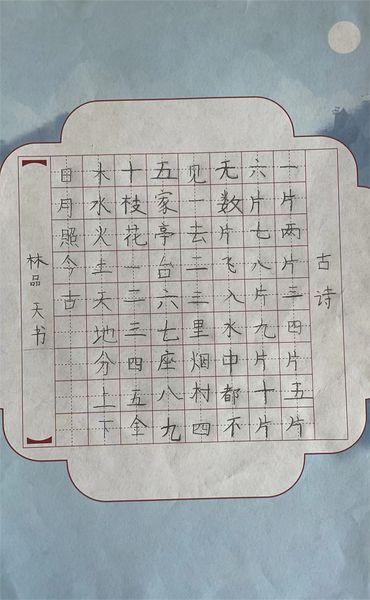 古诗
一片两片三四片五片
六片七八片九片十片
无数片飞入水中都不
见一去二三里烟村四
五家亭台六七座八九
十枝花一二三四五金
木水火土天地分上下
日月照今古
【林品 天书】